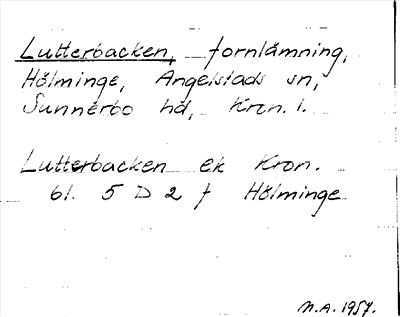 Lutterbacken, fornlämning,
Hölminge, Angelstads sn,
Sunnerbo hd, Kron. l.
Lutterbacken ek Kron.
bl. 5 D 2 f Hölminge
N.A. 1957.